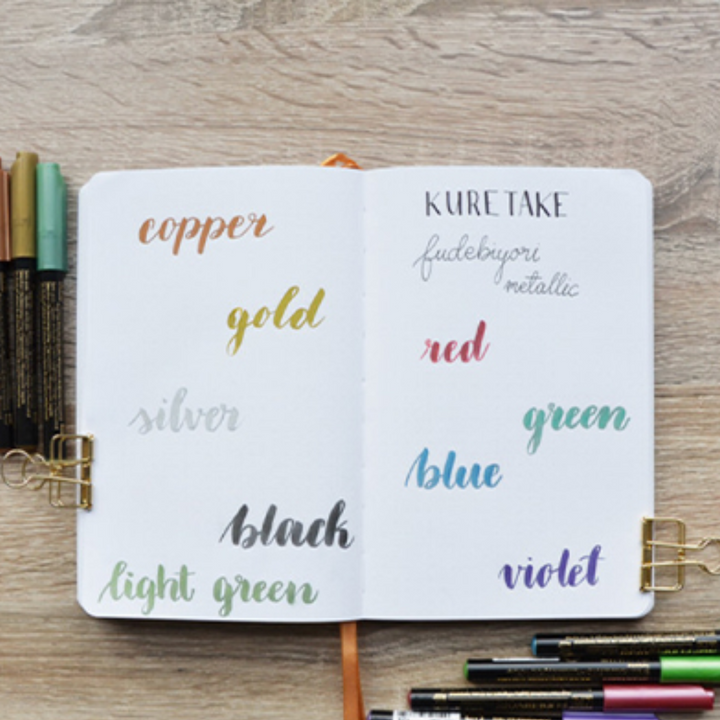 copper
gold
silver
black
light green
KURETAKE
fudebiyori
metallic
red
green
blue
violet